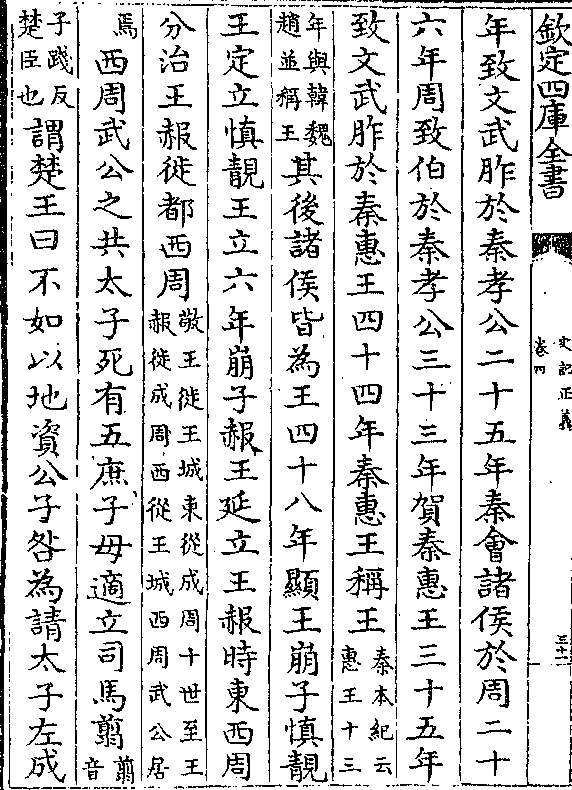 欽定四庫全書
史記正義
卷四
三十一
年致文武胙於秦孝公二十五年秦會諸侯於周二十
六年周致伯於秦孝公三十三年賀秦惠王三十五年
致文武胙於秦惠王四十四年秦惠王稱王秦本紀云惠王十三
年與韓魏趙並稱王其後諸侯皆為王四十八年顯王崩子慎靚
王定立慎靚王立六年崩子赧王延立王赧時東西周
分治王赧徙都西周敬王徙王城東從成周十世至王赧徙成周西從王城西周武公居
焉西周武公之共太子死有五庶子毋適立司馬翦翦音
子踐反楚臣也謂楚王曰不如以地資公子咎為請太子左成